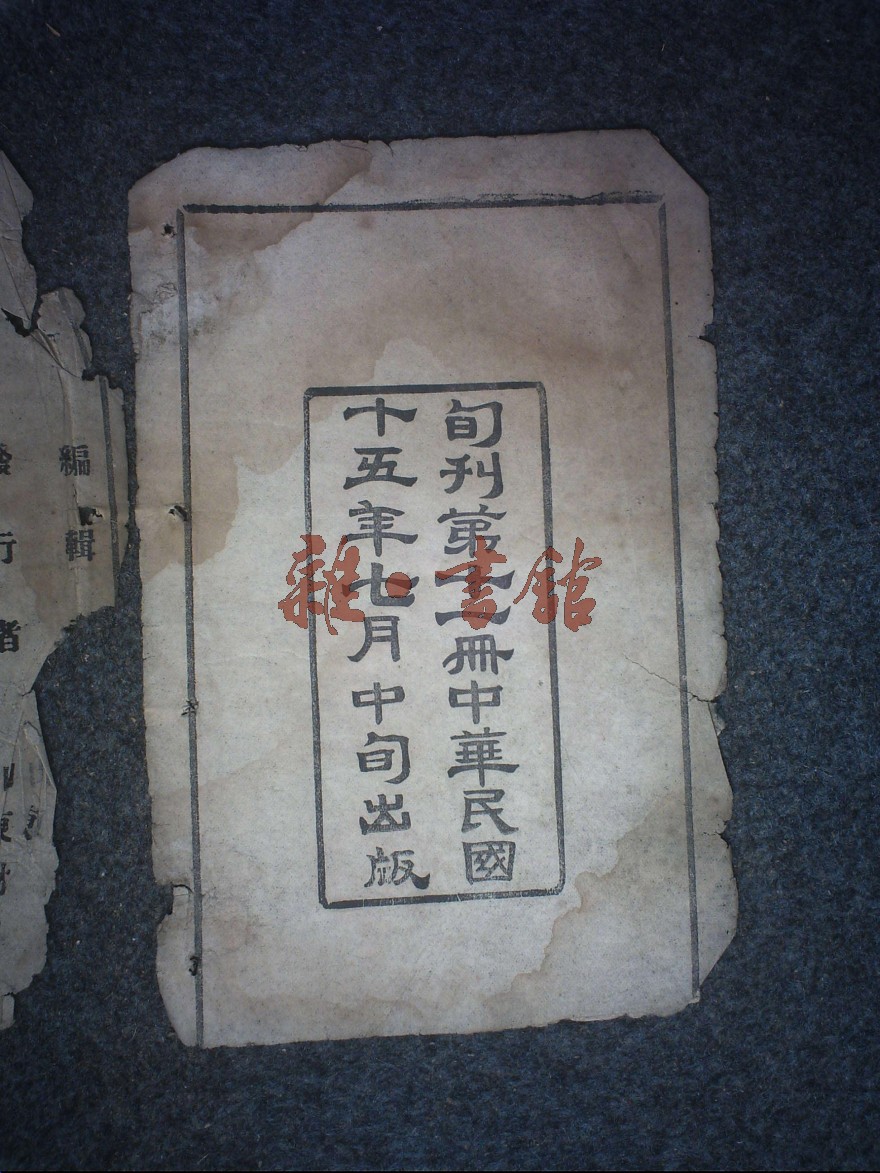 旬刊第十一冊中華民國
十五年七月中旬出版
編輯
發行者
雜·書館